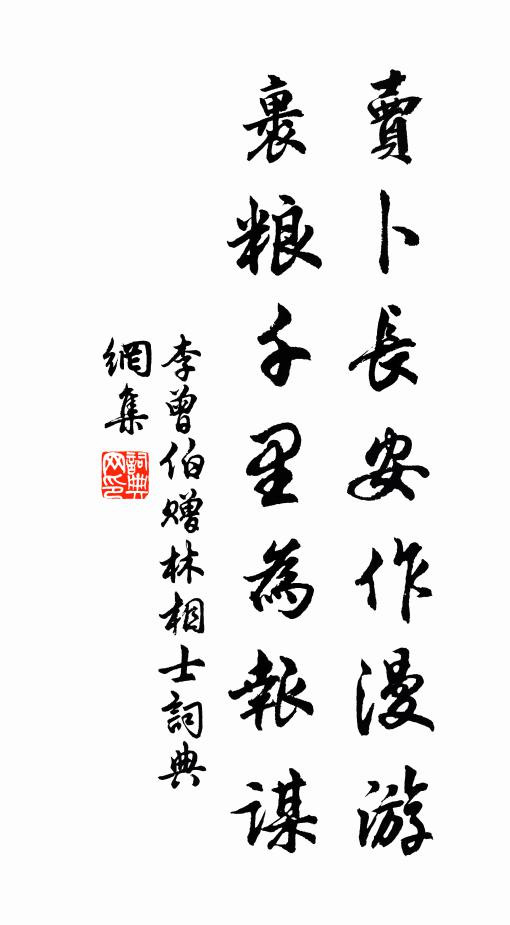 賣卜長安作漫游
裹粮千里為報謀
李曾伯贈林相士詞典
網集
詞典网印